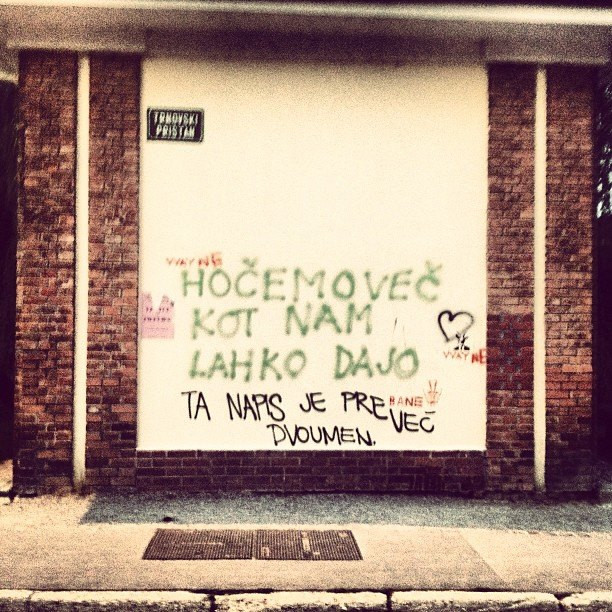 TRNOVSKI
PRISTAN
WAYNE
HOČEMO VEČ
KOT NAM
WAYNE
LAHKO DAJO
TA NAPIS JE PREVEČ
BANE
DVOUMEN.